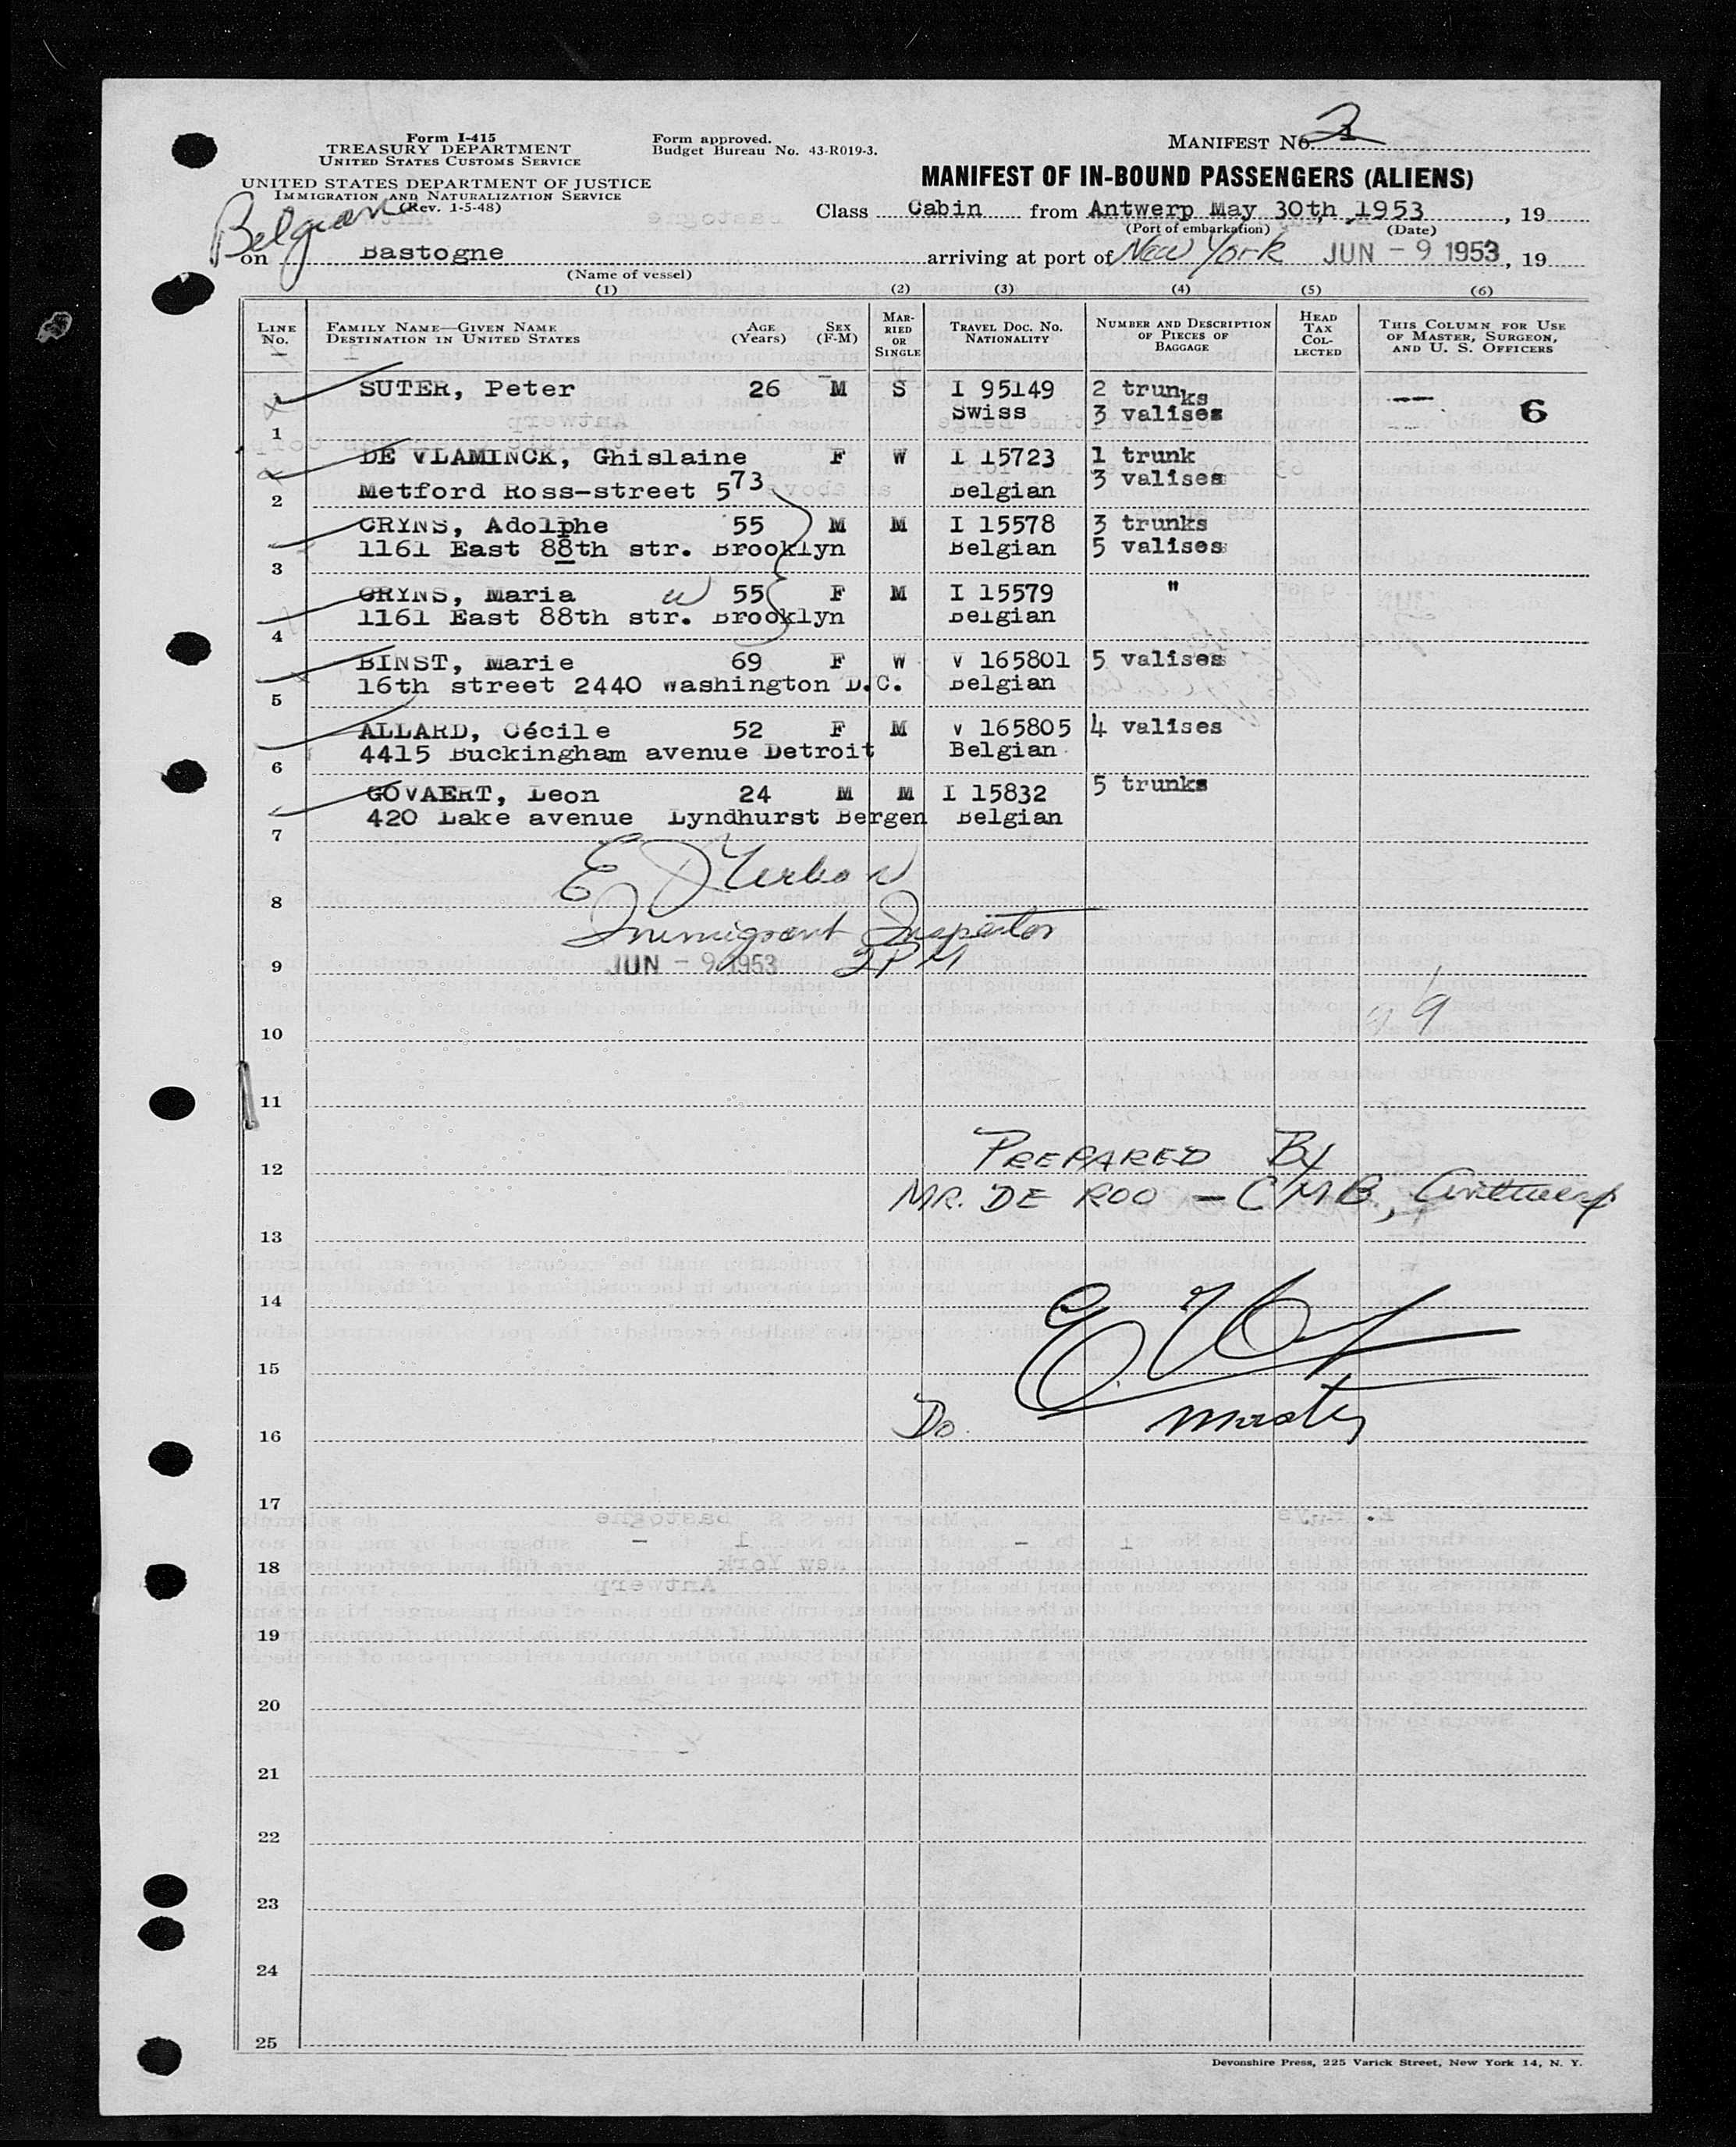 Form I-415
TREASURY DEPARTMENT
UNITED STATES CUSTOMS SERVICE
UNITED STATES DEPARTMENT OF JUSTICE
IMMIGRATION AND NATURALIZATION SERVICE
(Rev. 1-5-48)
Form approved.
Budget Bureau No. 43-R019-3.
MANIFEST No. 2
MANIFEST OF IN-BOUND PASSENGERS (ALIENS)
Class Cabin from Antwerp May 30th, 1953, 19
(Port of embarkation) (Date)
Belgian
on Bastogne arriving at port of New York JUN - 9 1953, 19
(Name of vessel)
(1) (2) (3) (4) (5) (6)
LINE No. FAMILY NAME—GIVEN NAME DESTINATION IN UNITED STATES AGE (Years) SEX (F-M) MARRIED OR SINGLE TRAVEL DOC. NO. NATIONALITY NUMBER AND DESCRIPTION OF PIECES OF BAGGAGE HEAD TAX COLLECTED THIS COLUMN FOR USE OF MASTER, SURGEON, AND U. S. OFFICERS
SUTER, Peter 26 M S I 95149 2 trunks — 6
1 Swiss 3 valises
DE VLAMINCK, Ghislaine 73 F W I 15723 1 trunk
2 Metford Ross-street 5 Belgian 3 valises
CRYNS, Adolphe 55 M M I 15578 3 trunks
3 1161 East 88th str. Brooklyn Belgian 5 valises
CRYNS, Maria w 55 F M I 15579 "
4 1161 East 88th str. Brooklyn Belgian
BINST, Marie 69 F W V 165801 5 valises
5 16th street 2440 Washington D.C. Belgian
ALLARD, Cécile 52 F M V 165805 4 valises
6 4415 Buckingham avenue Detroit Belgian
GOVAERT, Leon 24 M M I 15832 5 trunks
7 420 Lake avenue Lyndhurst Bergen Belgian
8
Immigrant Inspector
9 JUN - 9 1953 2PM
10 9
11
12 PREPARED BY
MR. DE ROO - CMB, Antwerp
13
14
15
16 Do Master
17
18
19
20
21
22
23
24
25
Devonshire Press, 225 Varick Street, New York 14, N. Y.